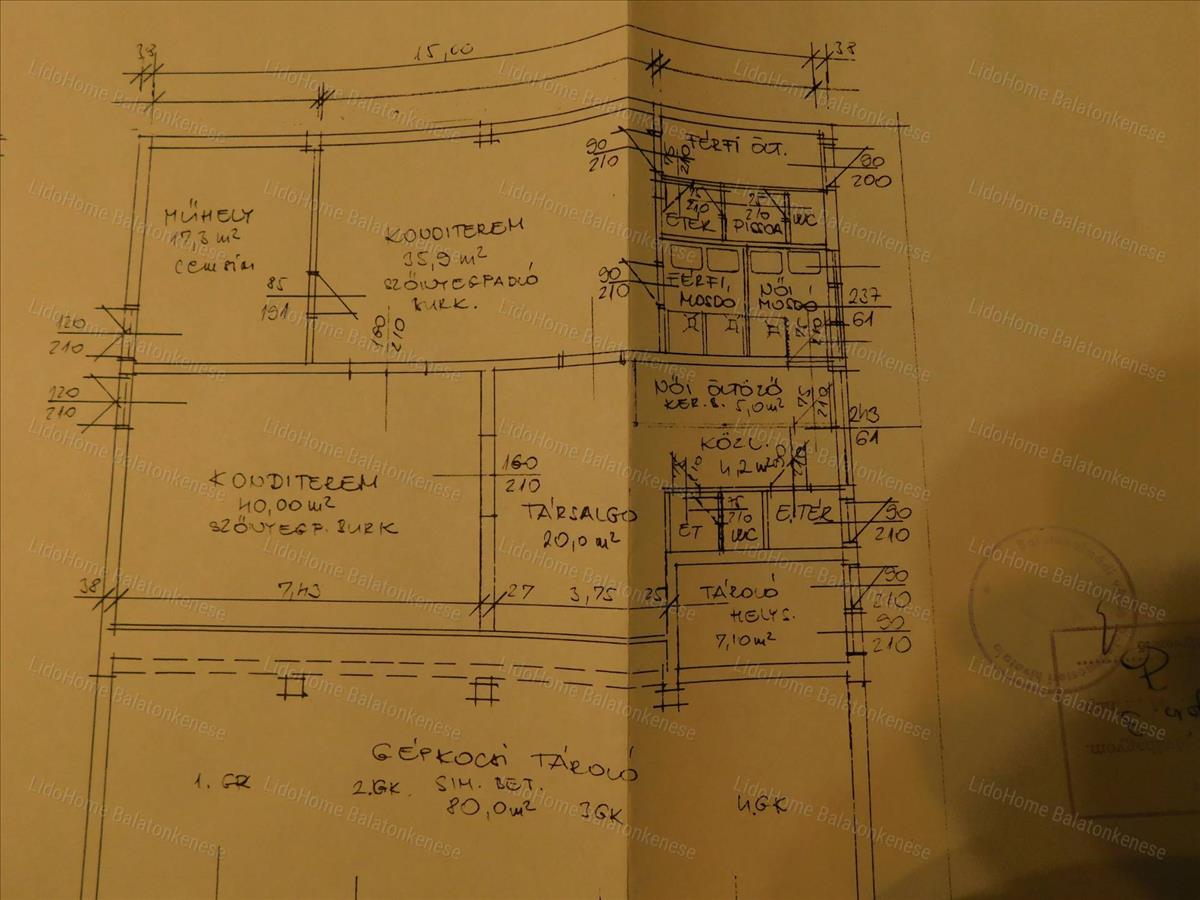 38
15,00
38
FÉRFI ÖLT.
90
210
75
210
90
200
MŰHELY
17,3 m²
cemsim
KONDITEREM
35,9 m²
SZŐNYEGPADLÓ
BURK.
75
210
ETÉR
75
210
PISSOA
WC
85
191
90
210
FÉRFI
MOSDÓ
NŐI
MOSDÓ
75
210
237
61
120
210
160
210
120
210
NŐI ÖLTÖZŐ
KER.B. 5,0 m²
75
210
243
61
KÖZL.
4,2 m²
210
KONDITEREM
40,00 m²
SZŐNYEGP. BURK
160
210
TÁRSALGÓ
20,0 m²
ET
75
210
WC
E.TÉR
90
210
38
7,43
27
3,75
25
TÁROLÓ
HELYS.
7,10 m²
90
210
90
210
GÉPKOCSI TÁROLÓ
1. GK
2.GK.
SIM. BET.
80,0 m²
3GK
4.GK
LidoHome Balatonkenese